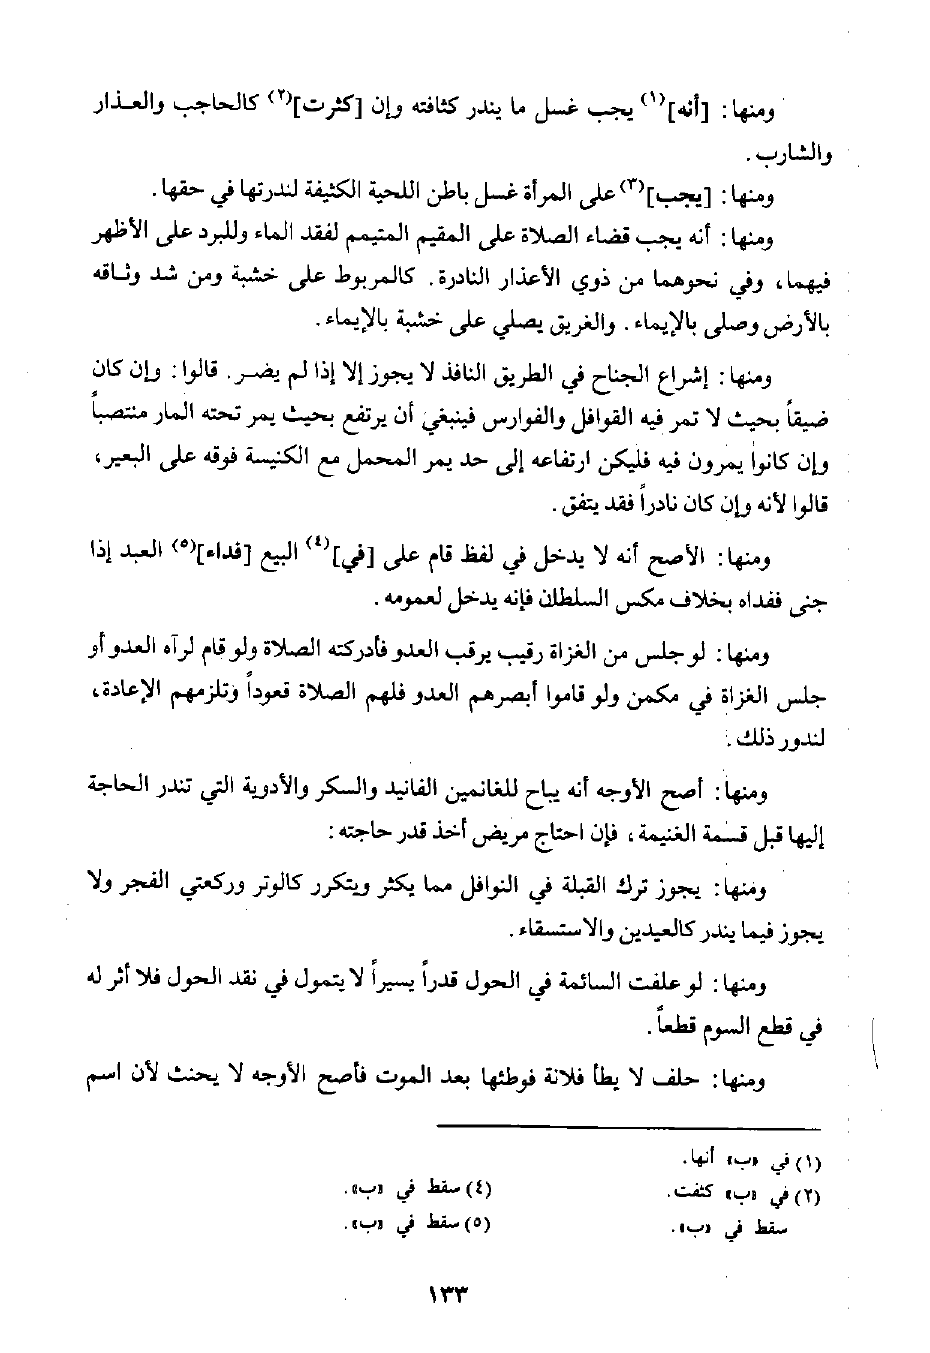 ومنها: [أنه](١) يجب غسل ما يندر كثافته وإن [كثرت](٢) كالحاجب والعذار
والشارب.
ومنها: [يجب](٣) على المرأة غسل باطن اللحية الكثيفة لندرتها في حقها.
ومنها: أنه يجب قضاء الصلاة على المقيم المتيمم لفقد الماء وللبرد على الأظهر
فيهما، وفي نحوهما من ذوي الأعذار النادرة. كالمربوط على خشبة ومن شد وثاقه
بالأرض وصلى بالإيماء. والغريق يصلي على خشبة بالإيماء.
ومنها: إشراع الجناح في الطريق النافذ لا يجوز إلا إذا لم يضر. قالوا: وإن كان
ضيقاً بحيث لا تمر فيه القوافل والفوارس فينبغي أن يرتفع بحيث يمر تحته المار منتصباً
وإن كانوا يمرون فيه فليكن ارتفاعه إلى حد يمر المحمل مع الكنيسة فوقه على البعير،
قالوا لأنه وإن كان نادراً فقد يتفق.
ومنها: الأصح أنه لا يدخل في لفظ قام على [في](٤) البيع [فداء](٥) العبد إذا
جنى ففداه بخلاف مكس السلطان فإنه يدخل لعمومه.
ومنها: لو جلس من الغزاة رقيب يرقب العدو فأدركته الصلاة ولو قام لرآه العدو أو
جلس الغزاة في مكمن ولو قاموا أبصرهم العدو فلهم الصلاة قعوداً وتلزمهم الإعادة،
لندور ذلك.
ومنها: أصح الأوجه أنه يباح للغانمين الفانيد والسكر والأدوية التي تندر الحاجة
إليها قبل قسمة الغنيمة، فإن احتاج مريض أخذ قدر حاجته:
ومنها: يجوز ترك القبلة في النوافل مما يكثر ويتكرر كالوتر وركعتي الفجر ولا
يجوز فيما يندر كالعيدين والاستسقاء.
ومنها: لو علفت السائمة في الحول قدراً يسيراً لا يتمول في نقد الحول فلا أثر له
في قطع السوم قطعاً.
ومنها: حلف لا يطأ فلانة فوطئها بعد الموت فأصح الأوجه لا يحنث لأن اسم
(١) في «ب» أنها.
(٢) في «ب» كثفت.
سقط في «ب».
(٤) سقط في «ب».
(٥) سقط في «ب».
١٣٣